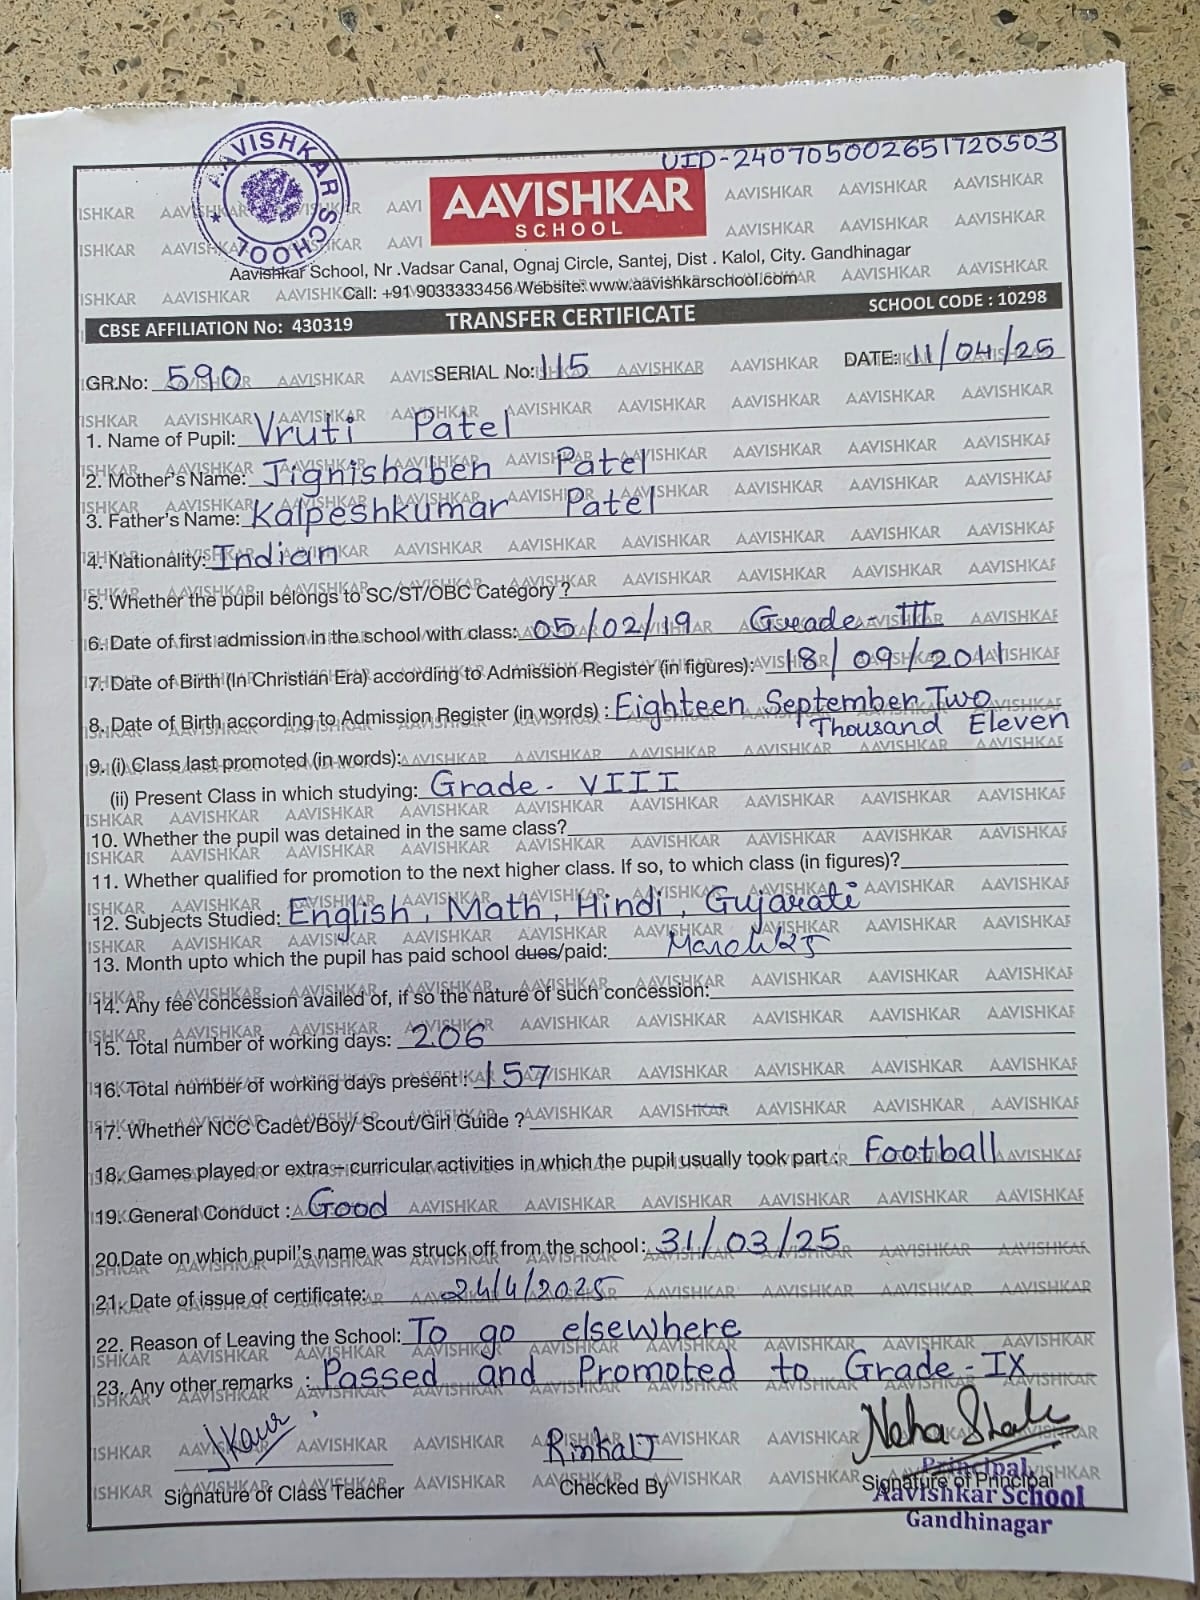 UID-2407050026517​20503
AAVISHKAR SCHOOL
AAVISHKAR
SCHOOL
Aavishkar School, Nr .Vadsar Canal, Ognaj Circle, Santej, Dist . Kalol, City. Gandhinagar
Call: +91 9033333456 Website: www.aavishkarschool.com
CBSE AFFILIATION No: 430319 TRANSFER CERTIFICATE SCHOOL CODE : 10298
GR.No: 590 SERIAL No: 115 DATE: 11/04/25
1. Name of Pupil: Vruti Patel
2. Mother's Name: Jignishaben Patel
3. Father's Name: Kalpeshkumar Patel
4. Nationality: Indian
5. Whether the pupil belongs to SC/ST/OBC Category ?
6. Date of first admission in the school with class: 05/02/19 Grade-III
7. Date of Birth (In Christian Era) according to Admission Register (in figures): 18/09/2011
8. Date of Birth according to Admission Register (in words) : Eighteen September Two
Thousand Eleven
9. (i) Class last promoted (in words):
(ii) Present Class in which studying: Grade- VIII
10. Whether the pupil was detained in the same class?
11. Whether qualified for promotion to the next higher class. If so, to which class (in figures)?
12. Subjects Studied: English, Math, Hindi, Gujarati
13. Month upto which the pupil has paid school dues/paid: March/25
14. Any fee concession availed of, if so the nature of such concession:
15. Total number of working days: 206
16. Total number of working days present : 157
17. Whether NCC Cadet/Boy/ Scout/Girl Guide ?
18. Games played or extra – curricular activities in which the pupil usually took part : Football
19. General Conduct : Good
20.Date on which pupil's name was struck off from the school: 31/03/25
21. Date of issue of certificate: 24/4/2025
22. Reason of Leaving the School: To go elsewhere
23. Any other remarks : Passed and Promoted to Grade-IX
JKaur RinkalJ Neha Shah
Signature of Class Teacher Checked By Signature of Principal
Principal
Aavishkar School
Gandhinagar